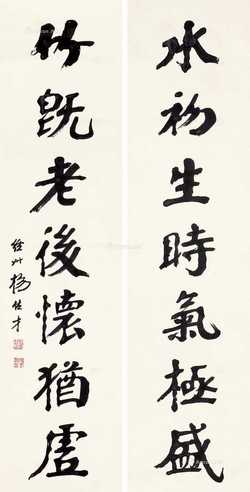 水初生時氣極盛
竹既老後懷猶虛
徐州楊才